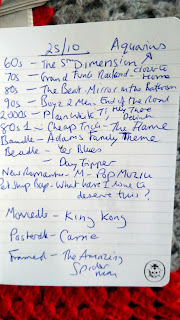 25/10 Aquarius
60s - The 5th Dimension
70s - Grand Funk Railroad - Closer to Home
80s - The Beat - Mirror in the Bathroom
90s - Boyz 2 Men - End of the Road
2000s - Plain White T's Hey There Delilah
80s 1 - Cheap Trick - The Flame
- Adams Family Theme
Beatle - Yer Blues
- Day Tripper
New Romantic - M - Pop Muzik
Pet Shop Boys - What have I done to
deserve this?
- King Kong
- Carrie
Framed - The Amazing
Spider
man